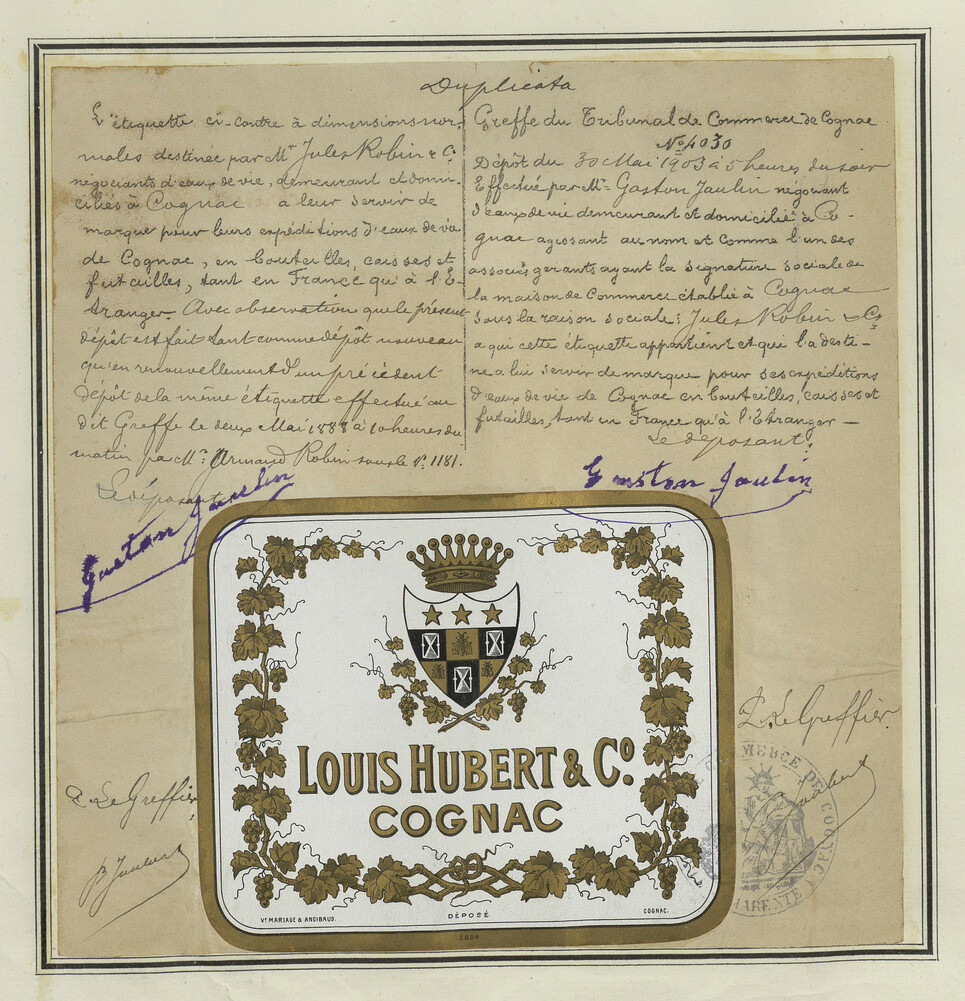 Duplicata
L'étiquette ci-contre à dimensions nor-
males destinée par Mr Jules Robin & Cie
négociants d'eaux de vie, demeurant et domi-
ciliés à Cognac à leur servir de
marque pour leurs expéditions d'eaux de vie
de Cognac, en bouteilles, caisses et
futailles, tant en France qu'à l'E-
tranger. Avec observation que le présent
dépôt est fait tant comme dépôt nouveau
qu'en renouvellement d'un précédent
dépôt de la même étiquette effectué au
dit Greffe le deux Mai 1888 à 10 heures du
matin par Mr Armand Robin sous le No 1181.
Le déposant
Gaston Jaulin
Greffe du Tribunal de Commerce de Cognac
No 4030
Dépôt du 30 Mai 1903 à 5 heures du soir
Effectué par Mr Gaston Jaulin négociant
d'eaux de vie demeurant et domicilié à Co-
gnac agissant au nom et comme l'un des
associés gerants ayant la signature sociale de
la maison de Commerce établie à Cognac
sous la raison sociale: Jules Robin & Cie
a qui cette étiquette appartient et qui l'a desti-
née a lui servir de marque pour ses expéditions
d'eaux de vie de Cognac en bouteilles, caisses et
futailles, tant en France qu'à l'Etranger —
Le déposant:
Gaston Jaulin
LOUIS HUBERT & Co.
COGNAC
Vt MARIAGE & ANGIBAUD.
DÉPOSÉ
COGNAC.
Le Greffier
Le Greffier
COMMERCE DE COGNAC